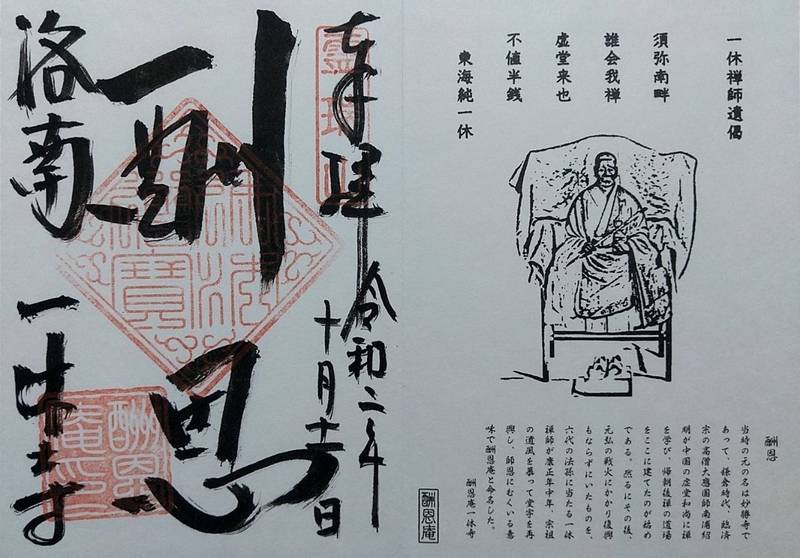 一休禅師遺偈
須弥南畔
誰会我禅
虚堂来也
不値半銭
東海純一休
酬恩
当時の元の名は妙勝寺で
あって、鎌倉時代、臨済
宗の高僧大應国師南浦紹
明が中国の虚堂和尚に禅
を学び、帰朝後禅の道場
をここに建てたのが始め
である。然るにその後、
元弘の戦火にかかり復興
もならずにいたものを、
六代の法孫に当たる一休
禅師が康正年中年、宗祖
の遺風を慕って堂宇を再
興し、師恩にむくいる意
味で酬恩庵と命名した。
酬恩庵一休寺
酬恩庵
奉拝
令和二年
十月十一日
酬恩
洛南
一休寺
佛法僧寶
酬恩庵印